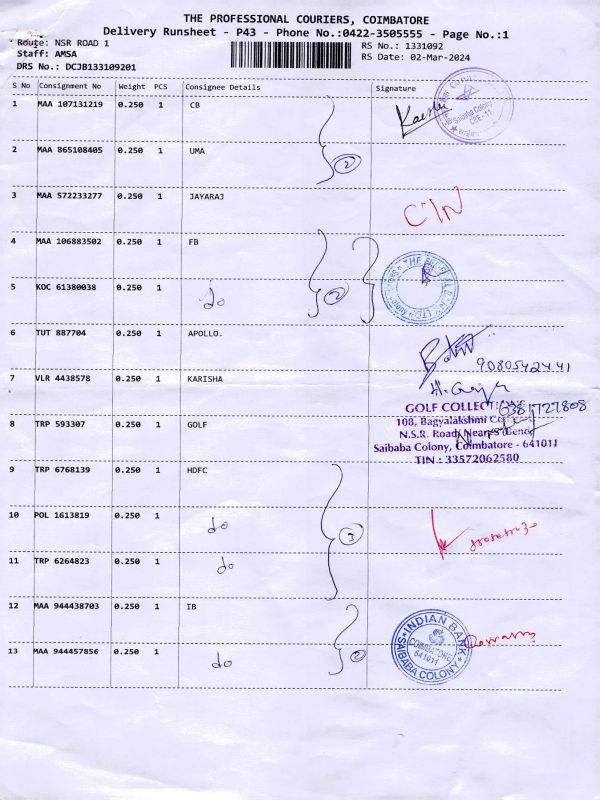 THE PROFESSIONAL COURIERS, COIMBATORE
Delivery Runsheet - P43 - Phone No.:0422-3505555 - Page No.:1
Route: NSR ROAD 1
RS No.: 1331092
Staff: AMSA
RS Date: 02-Mar-2024
DRS No.: DCJB133109201
S No Consignment No Weight PCS Consignee Details Signature
1 MAA 107131219 0.250 1 CB
Saibaba Colony
CBE - 11
2 MAA 865108405 0.250 1 UMA
2
3 MAA 572233277 0.250 1 JAYARAJ
C/N
4 MAA 106883502 0.250 1 FB
2
5 KOC 61380038 0.250 1 do
6 TUT 887704 0.250 1 APOLLO.
9080542441
7 VLR 4438578 0.250 1 KARISHA
GOLF COLLECT
108, Bagyalakshmi
8 TRP 593307 0.250 1 GOLF
N.S.R. Road,
Saibaba Colony, Coimbatore - 641011
TIN : 33572062580
9 TRP 6768139 0.250 1 HDFC
3
10 POL 1613819 0.250 1 do
11 TRP 6264823 0.250 1 do
12 MAA 944438703 0.250 1 IB
INDIAN BANK
COIMBATORE
641011
SAIBABA COLONY
13 MAA 944457856 0.250 1 do
2